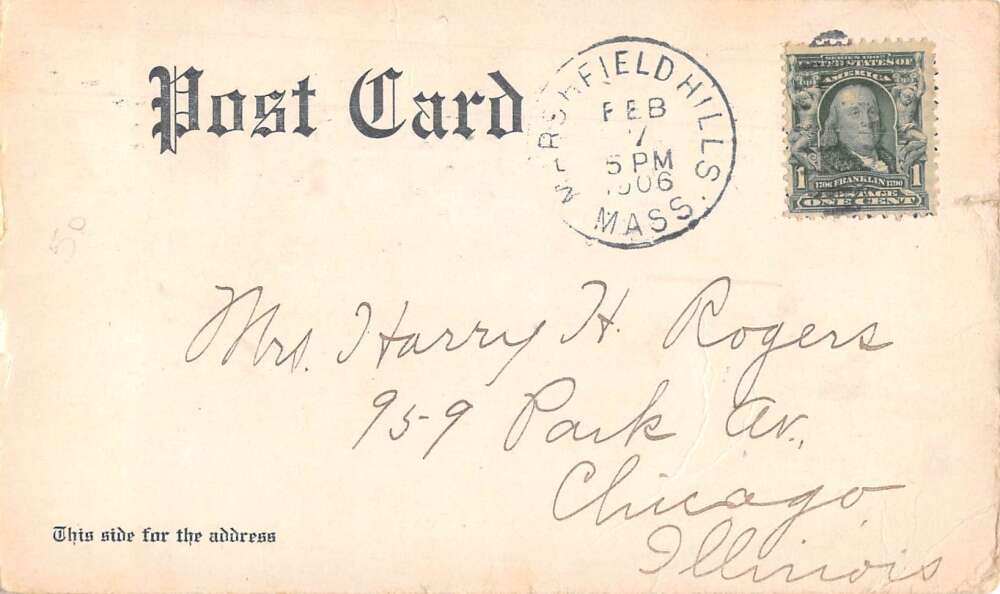 Post Card
MARSHFIELD HILLS
FEB
7
5 PM
1906
MASS.
SERIES 1902
UNITED STATES OF
AMERICA
1 1706 FRANKLIN 1790 1
POSTAGE
ONE CENT
50
Mrs. Harry H. Rogers
959 Park Av.,
Chicago
Illinois
This side for the address